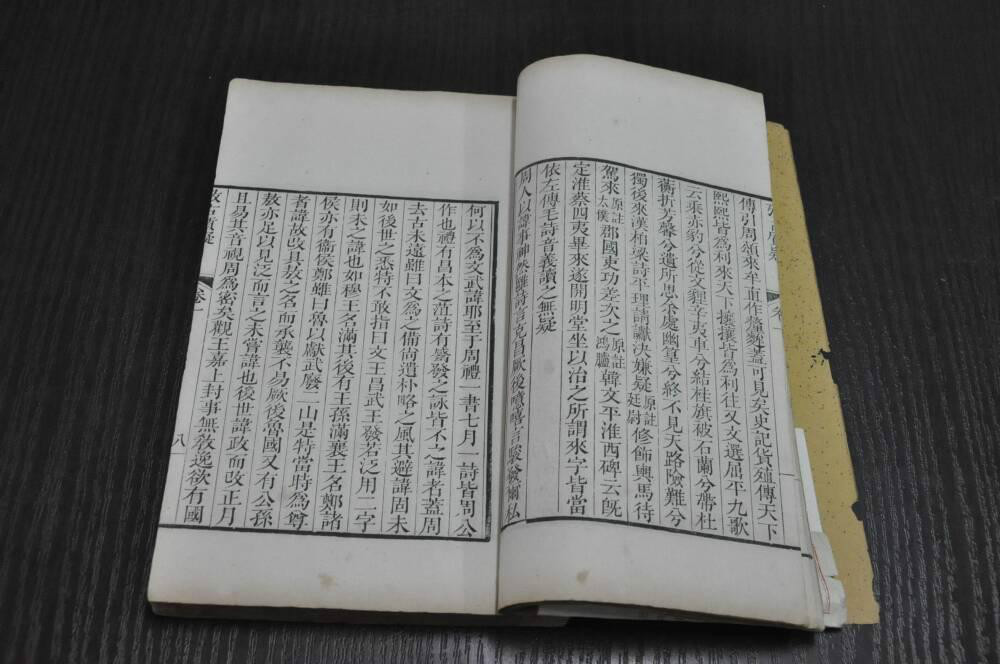 傳引周頌來牟直作釐麰蓋可見矣史記貨殖傳天下
熙熙皆爲利來天下攘攘皆爲利往又文選屈平九歌
云乘赤豹兮從文貍辛夷車兮結桂旗破石蘭兮帶杜
蘅折芳馨兮遺所思余處幽篁兮終不見天路險難兮
獨後來漢柏梁詩平理請讞決嫌疑原註廷尉修飾輿馬待
駕來原註太僕郡國吏功差次之原註鴻臚韓文平淮西碑云旣
定淮蔡四夷畢來遂開明堂坐以治之所謂來字皆當
依左傳毛詩音義讀之無疑
周人以諱事神然雝詩言克昌厥後噫嘻言駿發爾私
何以不爲文武諱耶至于周禮一書七月一詩皆周公
作也禮有昌本之菹詩有觱發之詠皆不之諱者蓋周
去古未遠雖曰文爲之備尙遺朴略之風其避諱固未
如後世之悉特不敢指曰文王昌武王發若泛用二字
則未之諱也如穆王名滿其後有王孫滿襄王名鄭諸
侯亦有衞侯鄭雖曰魯以獻武廢二山是特當時爲尊
者諱故改具敖之名而承襲不易厥後魯國又有公孫
敖亦足以見泛而言之未嘗諱也後世諱政而改正月
且易其音視周爲密矣觀王嘉上封事無敎逸欲有國
攷古質疑
卷一
八